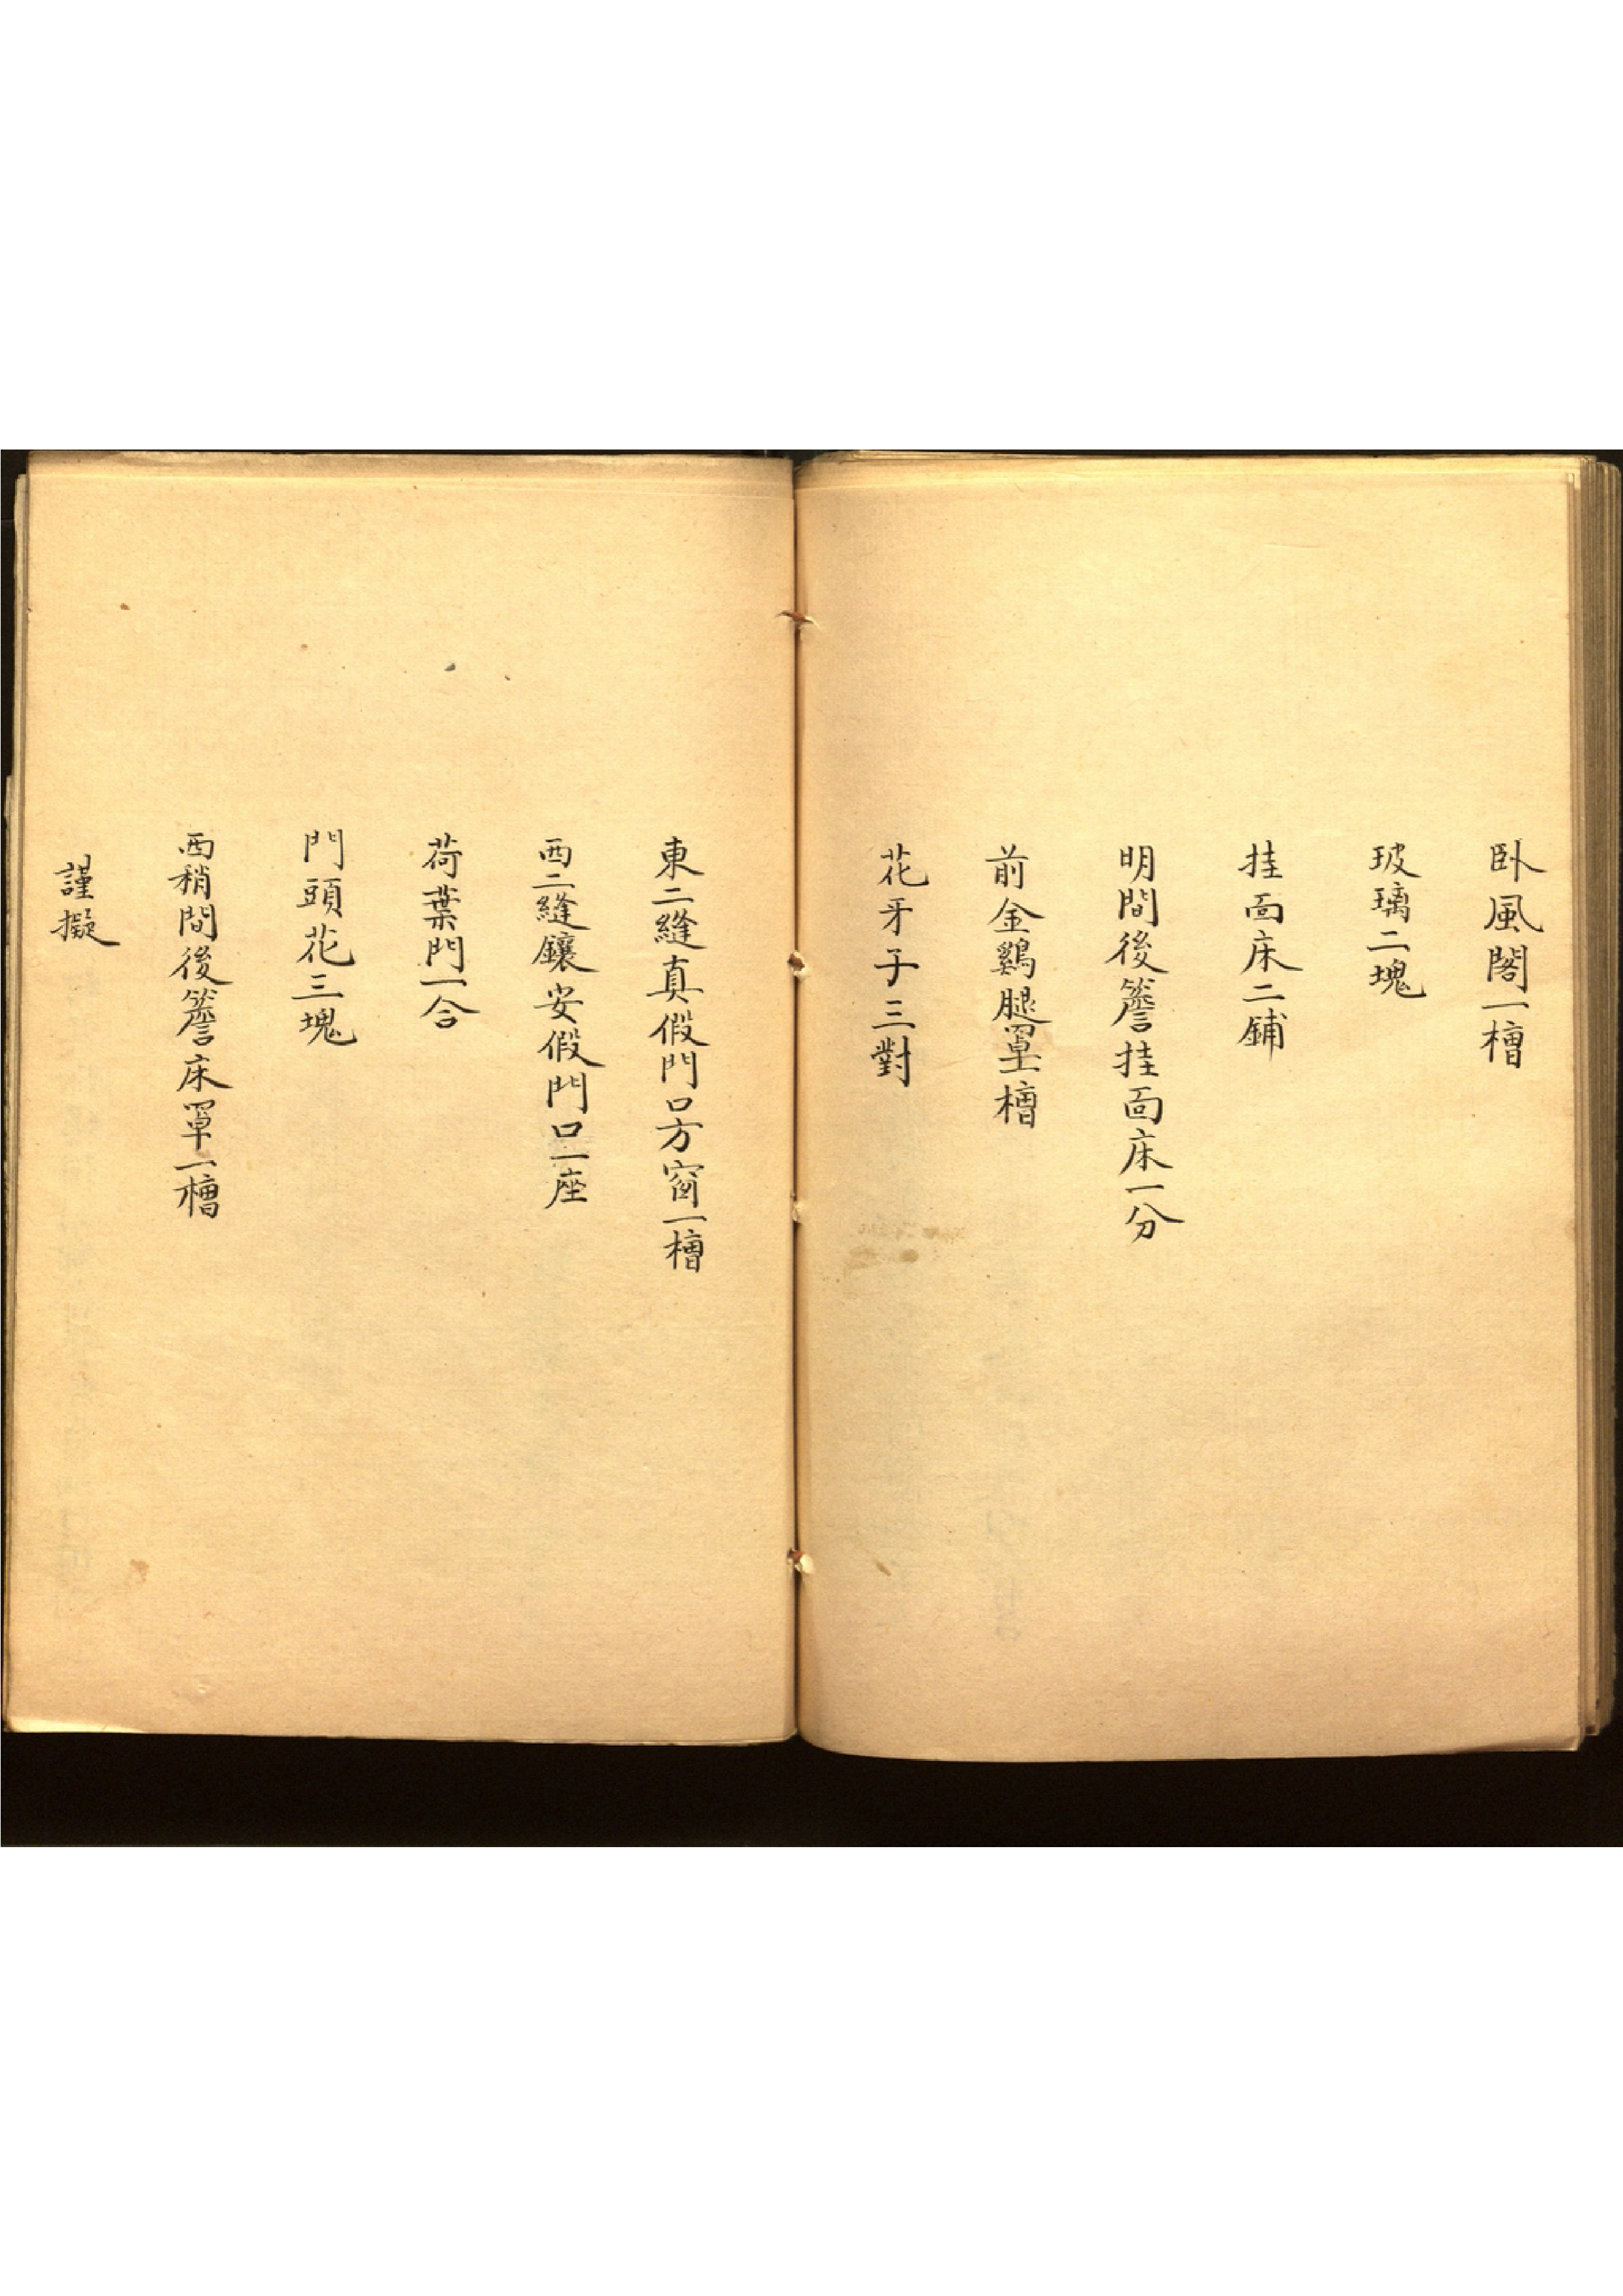 卧風閣一槽
玻璃二塊
挂面床二鋪
明間後簷挂面床一分
前金鷄腿罩一槽
花牙子三對
東二縫真假門口方窗一槽
西二縫鑲安假門口一座
荷葉門一合
門頭花三塊
西稍間後簷床罩一槽
謹擬